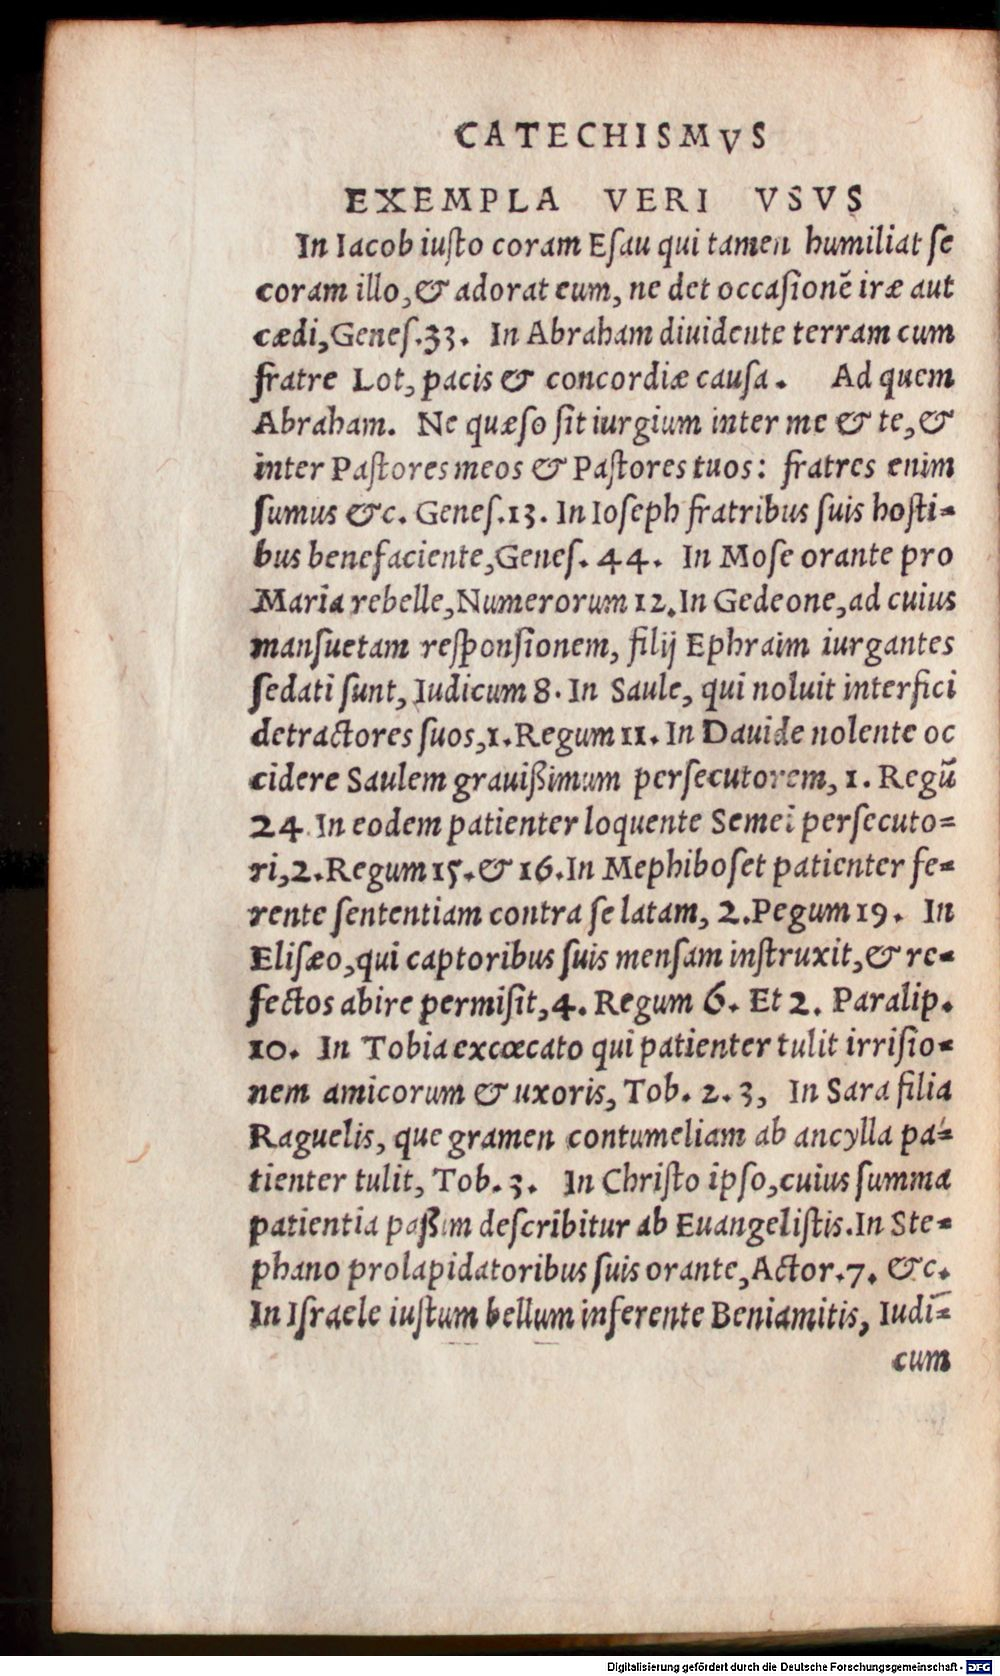 CATECHISMVS
EXEMPLA VERI VSVS
In Iacob iuſto coram Eſau qui tamen humiliat ſe
coram illo, & adorat eum, ne det occaſionē iræ aut
cædi, Geneſ. 33. In Abraham diuidente terram cum
fratre Lot, pacis & concordiæ cauſa. Ad quem
Abraham. Ne quæſo ſit iurgium inter me & te, &
inter Paſtores meos & Paſtores tuos: fratres enim
ſumus &c. Geneſ. 13. In Ioſeph fratribus ſuis hoſti-
bus benefaciente, Geneſ. 44. In Moſe orante pro
Maria rebelle, Numerorum 12. In Gedeone, ad cuius
manſuetam reſponſionem, filij Ephraim iurgantes
ſedati ſunt, Iudicum 8. In Saule, qui noluit interfici
detractores ſuos, 1. Regum 11. In Dauide nolente oc
cidere Saulem grauißimum perſecutorem, 1. Regū
24 In eodem patienter loquente Semei perſecuto-
ri, 2. Regum 15. & 16. In Mephiboſet patienter fe-
rente ſententiam contra ſe latam, 2. Pegum 19. In
Eliſæo, qui captoribus ſuis menſam inſtruxit, & re-
fectos abire permiſit, 4. Regum 6. Et 2. Paralip.
10. In Tobia excœcato qui patienter tulit irriſio-
nem amicorum & uxoris, Tob. 2. 3, In Sara filia
Raguelis, que gramen contumeliam ab ancylla pa-
tienter tulit, Tob. 3. In Chriſto ipſo, cuius ſumma
patientia paßim deſcribitur ab Euangeliſtis. In Ste-
phano prolapidatoribus ſuis orante, Actor. 7. &c.
In Iſraele iuſtum bellum inferente Beniamitis, Iudi-
cum
Digitalisierung gefördert durch die Deutsche Forschungsgemeinschaft - DFG